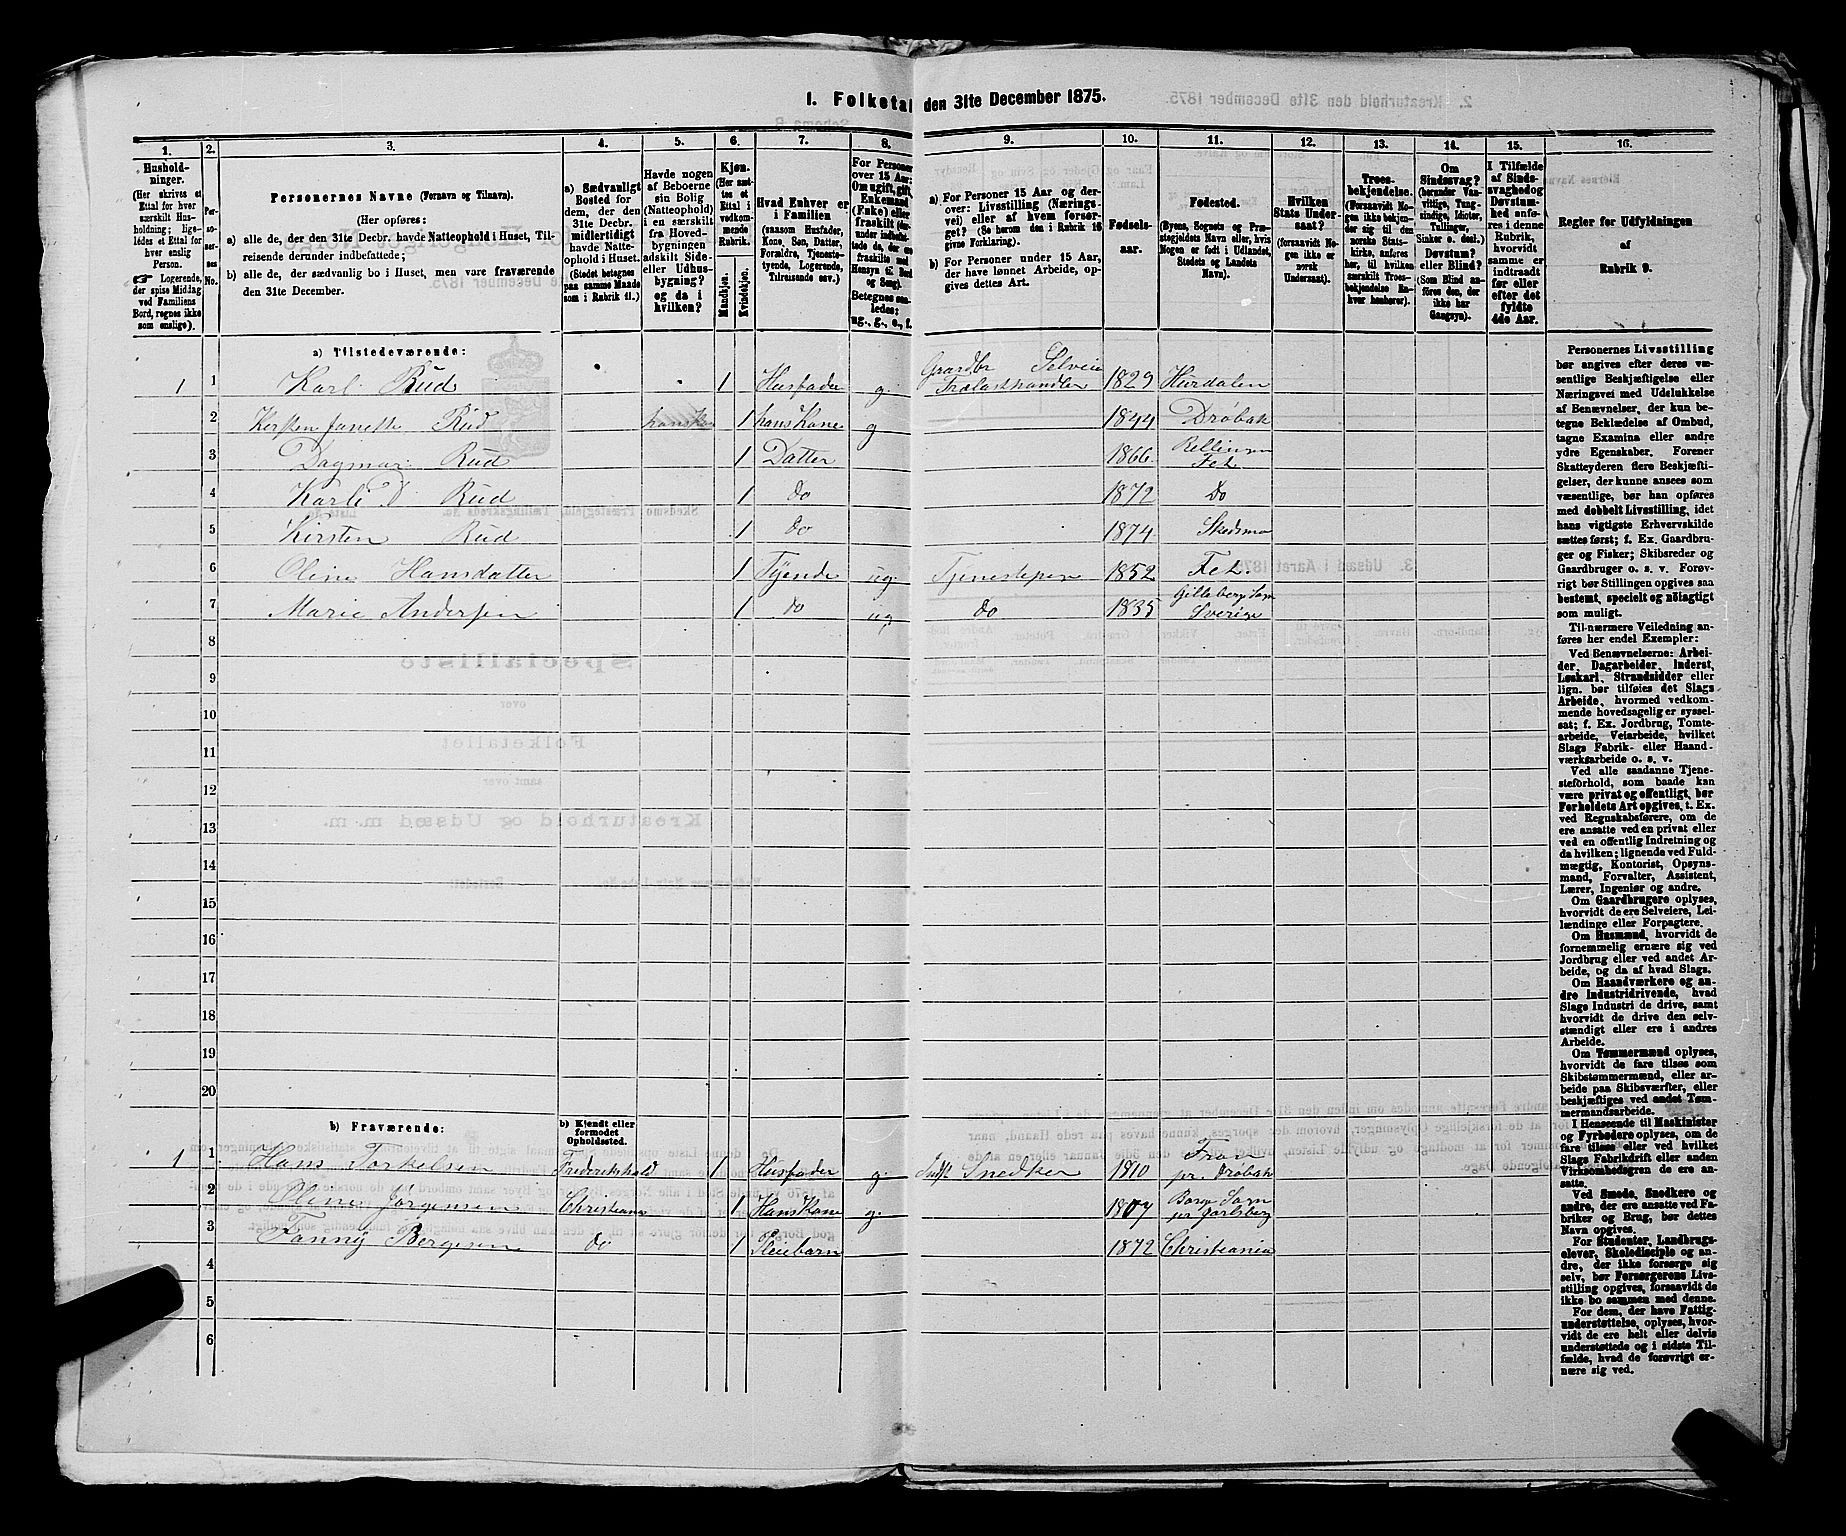 1. Folketal den 31te December 1875.
1. 2. 3. 4. 5. 6. 7. 8. 9. 10. 11. 12. 13. 14. 15. 16.
Hushold-
ninger.
(Her skrives et
Ettal for hver
særskilt Hus-
holdning; lige-
ledes et Ettal for
hver enslig
Person.
Logerende,
der spise Middag
ved Familiens
Bord, regnes ikke
som enslige).
Per-
so-
ner-
nes
No.
Personernes Navne (Fornavn og Tilnavn).
(Her opføres:
a) alle de, der den 31te Decbr. havde Natteophold i Huset, Til-
reisende derunder indbefattede;
b) alle de, der sædvanlig bo i Huset, men vare fraværende
den 31te December.
a) Sædvanligt
Bosted for
dem, der den
31te Decbr.
midlertidigt
havde Natte-
ophold i Huset.
(Stedet betegnes
paa samme Maade
som i Rubrik 11.)
Havde nogen
af Beboerne
sin Bolig
(Natteophold)
i en særskilt
fra Hoved-
bygningen
adskilt Side-
eller Udhus-
bygning?
og da i
hvilken?
Kjøn.
(Her sæt-
tes et
Ettal i
vedkom-
mende
Rubrik.
Mandkjøn.
Kvindekjøn.
Hvad Enhver er
i Familien
(saasom Husfader,
Kone, Søn, Datter,
Forældre, Tjeneste-
tyende, Logerende,
Tilreisende osv.)
For Personer
over 15 Aar:
Om ugift, gift,
Enkemand
(Enke) eller
fraskilt
Betegnes saa-
ledes:
ug., g., e., f.
a) For Personer 15 Aar og der-
over: Livsstilling (Nærings-
vei) eller af hvem forsør-
get? (Se herom den i Rubrik 16
givne Forklaring).
b) For Personer under 15 Aar,
der have lønnet Arbeide, op-
gives dettes Art.
Fødsels-
aar.
Fødested.
(Byens, Sognets og Præ-
stegjeldets Navn eller, hvis
Nogen er født i Udlandet,
Stedets og Landets
Navn).
Hvilken
Stats Under-
saat?
(forsaavidt No-
gen ikke er
norsk
Undersaat).
Troes-
bekjendelse.
(Forsaavidt No-
gen ikke bekjen-
der sig til den
norske Stats-
kirke, anføres
her, til hvilken
særskilt Troes-
bekjendelse Ra-
hver henhører).
Om
Sindssvag?
(herunder Van-
vittige, Tung-
sindige, Idioter,
Tullinger,
Sinker o. desl.)
Døvstum?
eller Blind?
(Som Blind an-
føres den, der
ikke har
Gangsyn).
I Tilfælde
af Sinds-
svaghed og
Døvstum-
hed anfø-
res i denne
Rubrik,
hvorvidt
samme er
indtraadt
før eller
efter det
fyldte
4de Aar.
Regler for Udfyldningen
af
Rubrik 9.
a) Tilstedeværende:
1 1 Karl Rud 1 Husfader g. Gaardbr Selveier Trælasthandler 1829 Hurdalen
2 Kirsten Janette Rud 1 hans Kone g 1844 Drøbak
3 Dagmar Rud 1 Datter 1866 Fet
4 Karli D Rud 1 do 1872 Do
5 Kirsten Rud 1 do 1874 Skedsmo
6 Oline Hansdatter 1 Tyende ug Tjenestepige 1852 Fet.
7 Marie Andersen 1 do ug do 1835 Gilleberga Sogn Sverige
8
9
10
11
12
13
14
15
16
17
18
19
20
b) Fraværende:
b) Kjendt eller
formodet
Opholdssted.
1 1 Hans Torkelsen Frederikshald 1 Husfader g. Snedker 1810 Fron pr. Drøbak
2 Oline Jørgensen Christiania 1 Hans Kone g. 1807 Borge Sogn pr Jarlsberg
3 Fanny Bergesen do 1 Pleiebarn 1872 Christiania
4
5
6
Personernes Livsstilling
bør angives efter deres væ-
sentlige Beskjæftigelse eller
Næringsvei med Udelukkelse
af Benævnelser, der kun be-
tegne Beklædelse af Ombud,
tagne Examina eller andre
ydre Egenskaber. Forener
Skatteyderen flere Beskjæfti-
gelser, der kunne ansees som
væsentlige, bør han opføres
med dobbelt Livsstilling, idet
hans vigtigste Erhvervskilde
sættes først; f. Ex. Gaardbru-
ger og Fisker; Skibsreder og
Gaardbruger o. s. v. Forøv-
rigt bør Stillingen opgives saa
bestemt, specielt og nøiagtigt
som muligt.
Til nærmere Veiledning an-
føres her endel Exempler:
Ved Benævnelserne: Arbei-
der, Dagarbeider, Inderst,
Løskarl, Strandsidder eller
lign. bør tilføies det Slags
Arbeide, hvormed vedkom-
mende hovedsagelig er syssel-
sat; f. Ex. Jordbrug, Tomte-
arbeide, Veiarbeide, hvilket
Slags Fabrik- eller Haand-
værksarbeide o. s. v.
Ved alle saadanne Tjene-
steforhold, som baade kan
være privat og offentligt, bør
Forholdets Art opgives, t. Ex.
ved Regnskabsførere, om de
ere ansatte ved en privat eller
ved en offentlig Indretning og
da hvilken; lignende ved Fuld-
mægtig, Kontorist, Opsyns-
mand, Forvalter, Assistent,
Lærer, Ingeniør og andre.
Om Gaardbrugere oplyses,
hvorvidt de ere Selveiere, Lei-
lændinge eller Forpagtere.
Om Husmænd, hvorvidt de
fornemmelig ernære sig ved
Jordbrug eller ved andet Ar-
beide, og da af hvad Slags.
Om Haandværkere og an-
dre Industridrivende, hvad
Slags Industri de drive, samt
hvorvidt de drive den selv-
stændigt eller ere i andres
Arbeide.
Om Tømmermænd oplyses,
hvorvidt de fare tilsøs som
Skibstømmermænd, eller ar-
beide paa Skibsværfter, eller
beskjæftiges ved andet Tøm-
mermandsarbeide.
I Henseende til Maskinister
og Fyrbødere oplyses, om de
fare tilsøs eller ved hvilket
Slags Fabrikdrift eller anden
Virksomhed de ere an-
satte.
Ved Smede, Snedkere og
andre, der ere ansatte ved Fa-
briker og Brug, bør dettes
Navn opgives.
For Studenter, Landbrugs-
elever, Skoledisciple og an-
dre, der ikke forsørge sig
selv, bør Forsørgerens Livs-
stilling opgives, forsaavidt de
ikke bo sammen med denne.
For dem, der have Fattig-
understøttelse, oplyses, hvor-
vidt de ere helt eller delvis
understøttede og i sidste Til-
fælde, hvad de forøvrigt er-
nære sig ved.